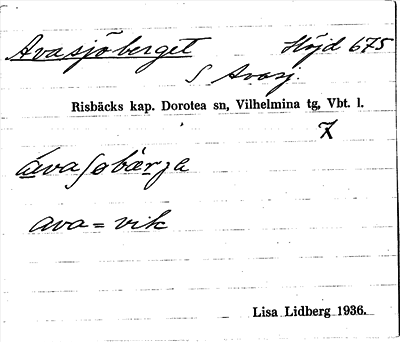 Avasjöberget Höjd 675
S Avasj.
Risbäcks kap. Dorotea sn, Vilhelmina tg, Vbt. l.
7
ava = vik
Lisa Lidberg 1936.